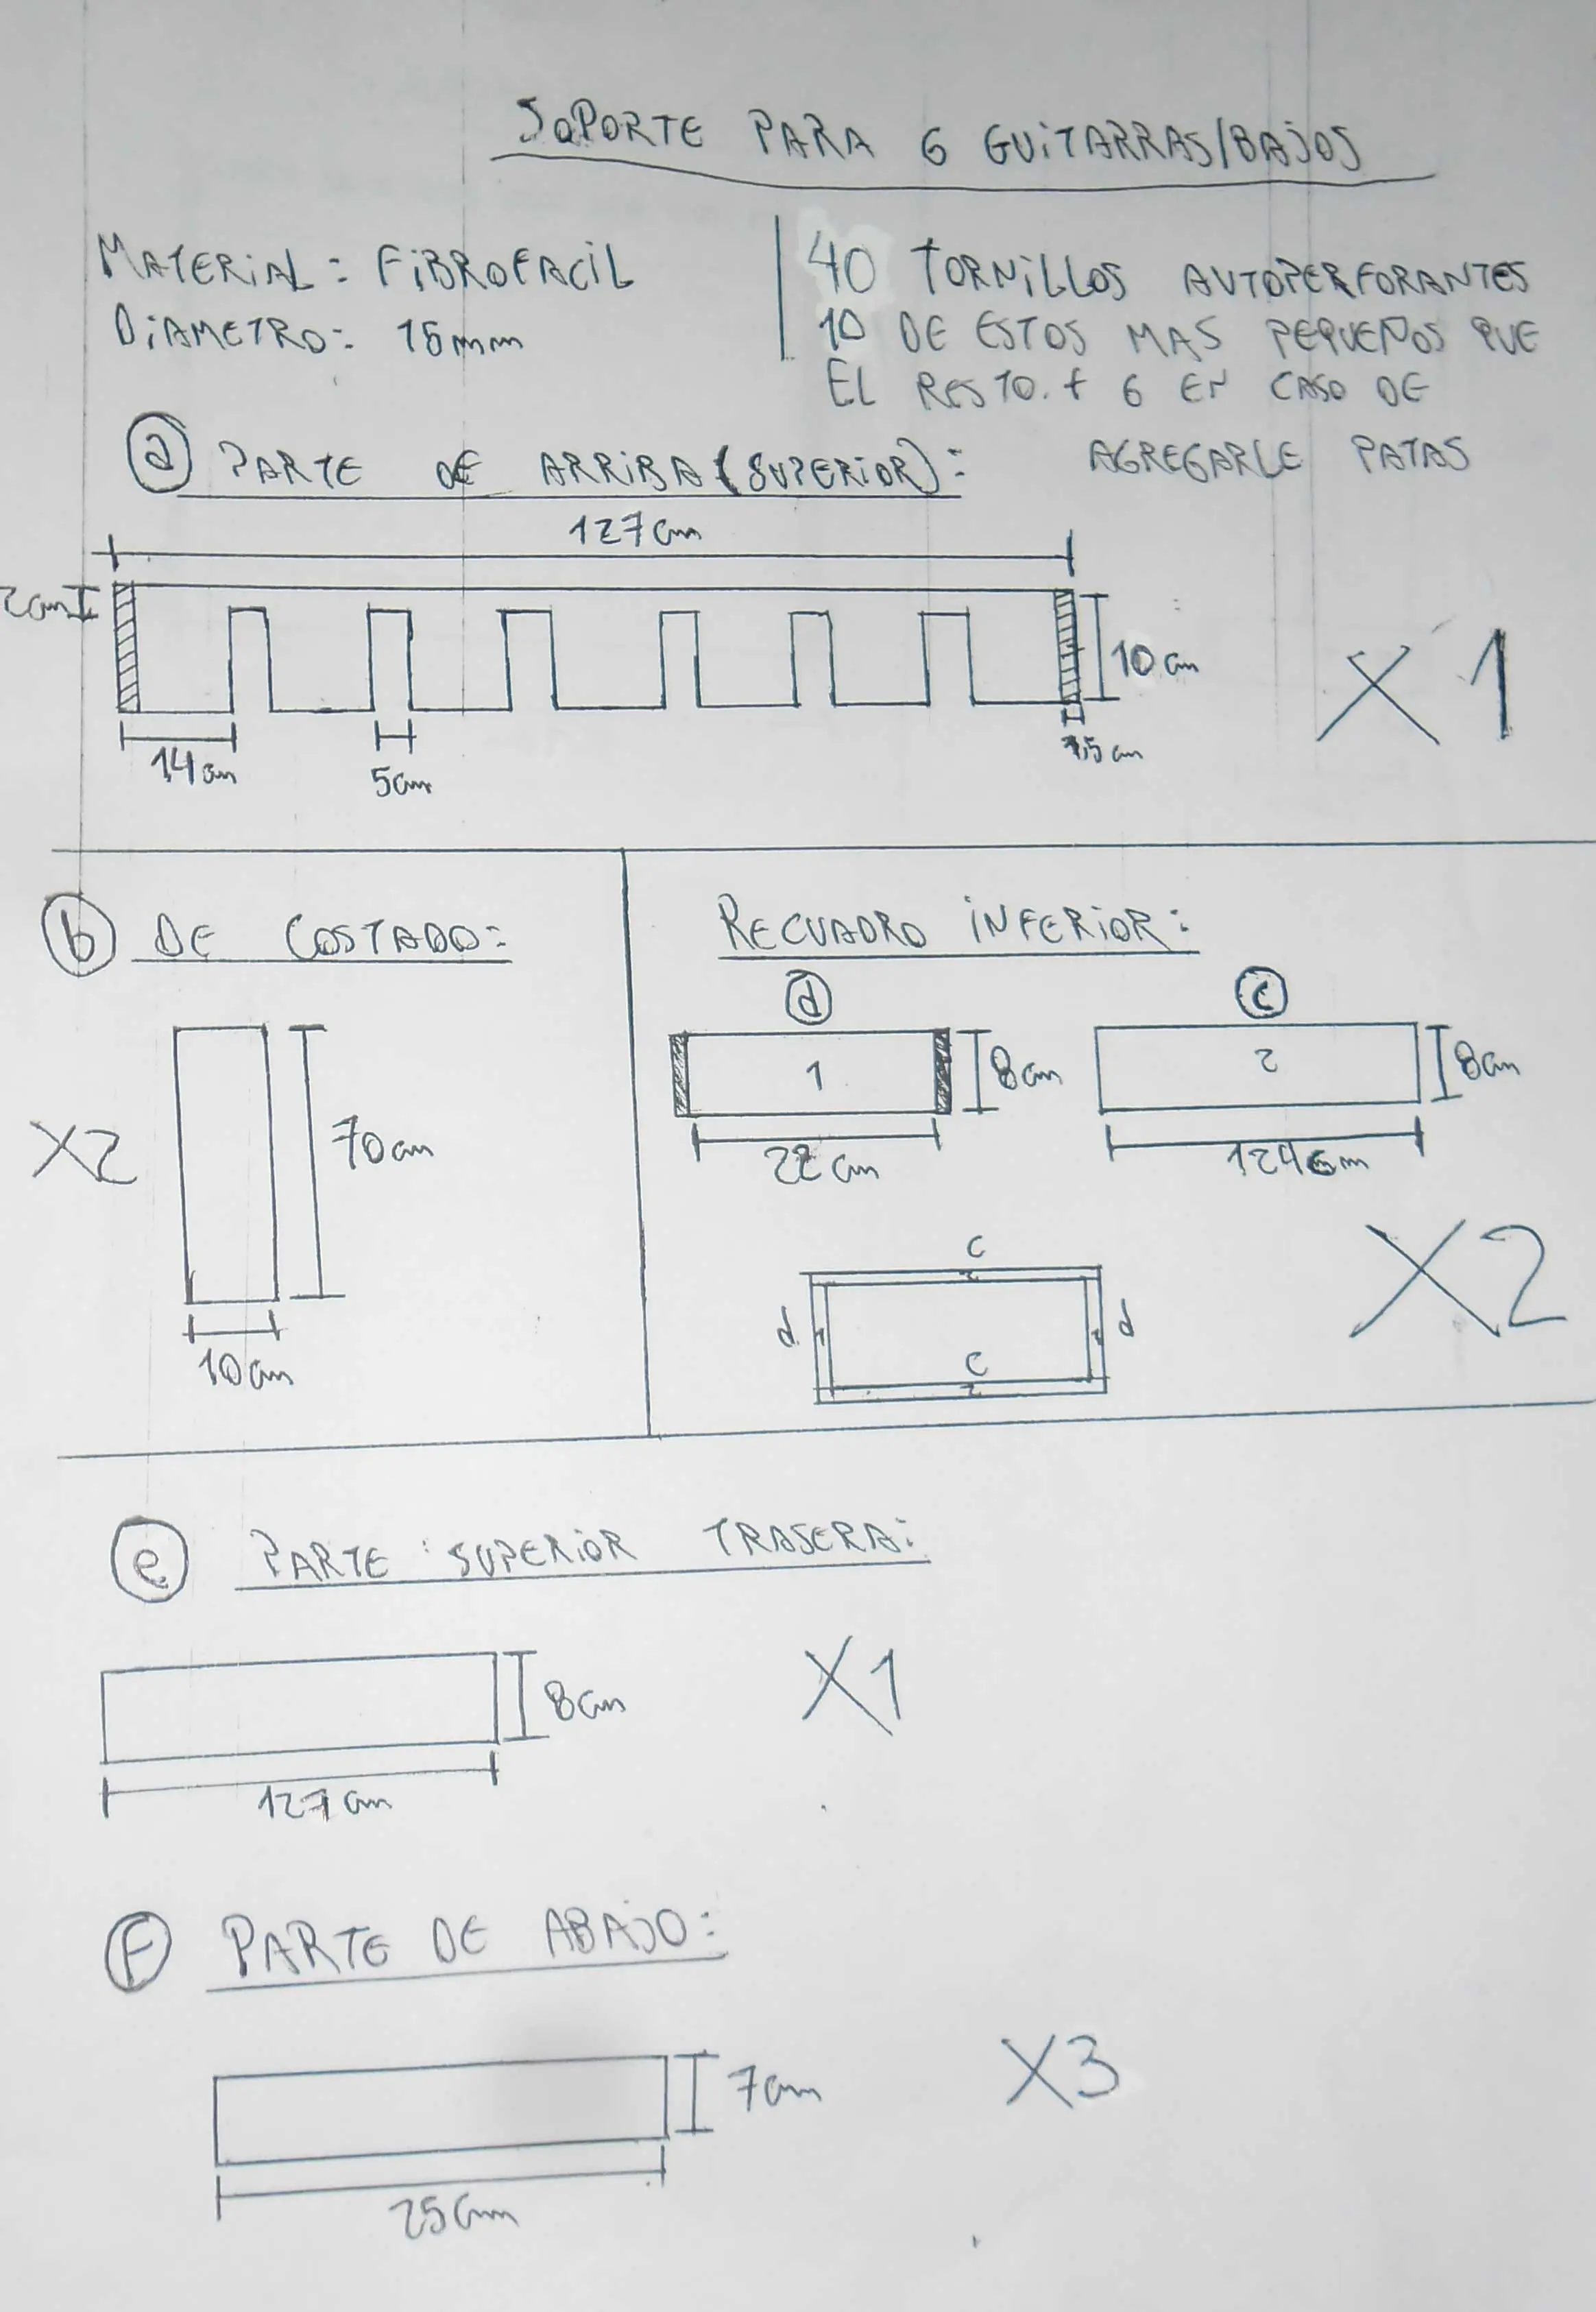 SOPORTE PARA 6 GUITARRAS/BAJOS
MATERIAL: FIBROFACIL
DIAMETRO: 15mm
40 TORNILLOS AUTOPERFORANTES
10 DE ESTOS MAS PEQUEÑOS QUE
EL RESTO. + 6 EN CASO DE
AGREGARLE PATAS
a PARTE DE ARRIBA (SUPERIOR):
127cm
2cm
10cm
X1
14cm
5cm
1,5cm
b DE COSTADO:
X2
70cm
10cm
RECUADRO INFERIOR:
d
c
1
8cm
2
8cm
22cm
124cm
X2
c
2
d
1
1
d
c
2
e PARTE SUPERIOR TRASERA:
8cm
X1
127cm
F PARTE DE ABAJO:
7cm
X3
25cm